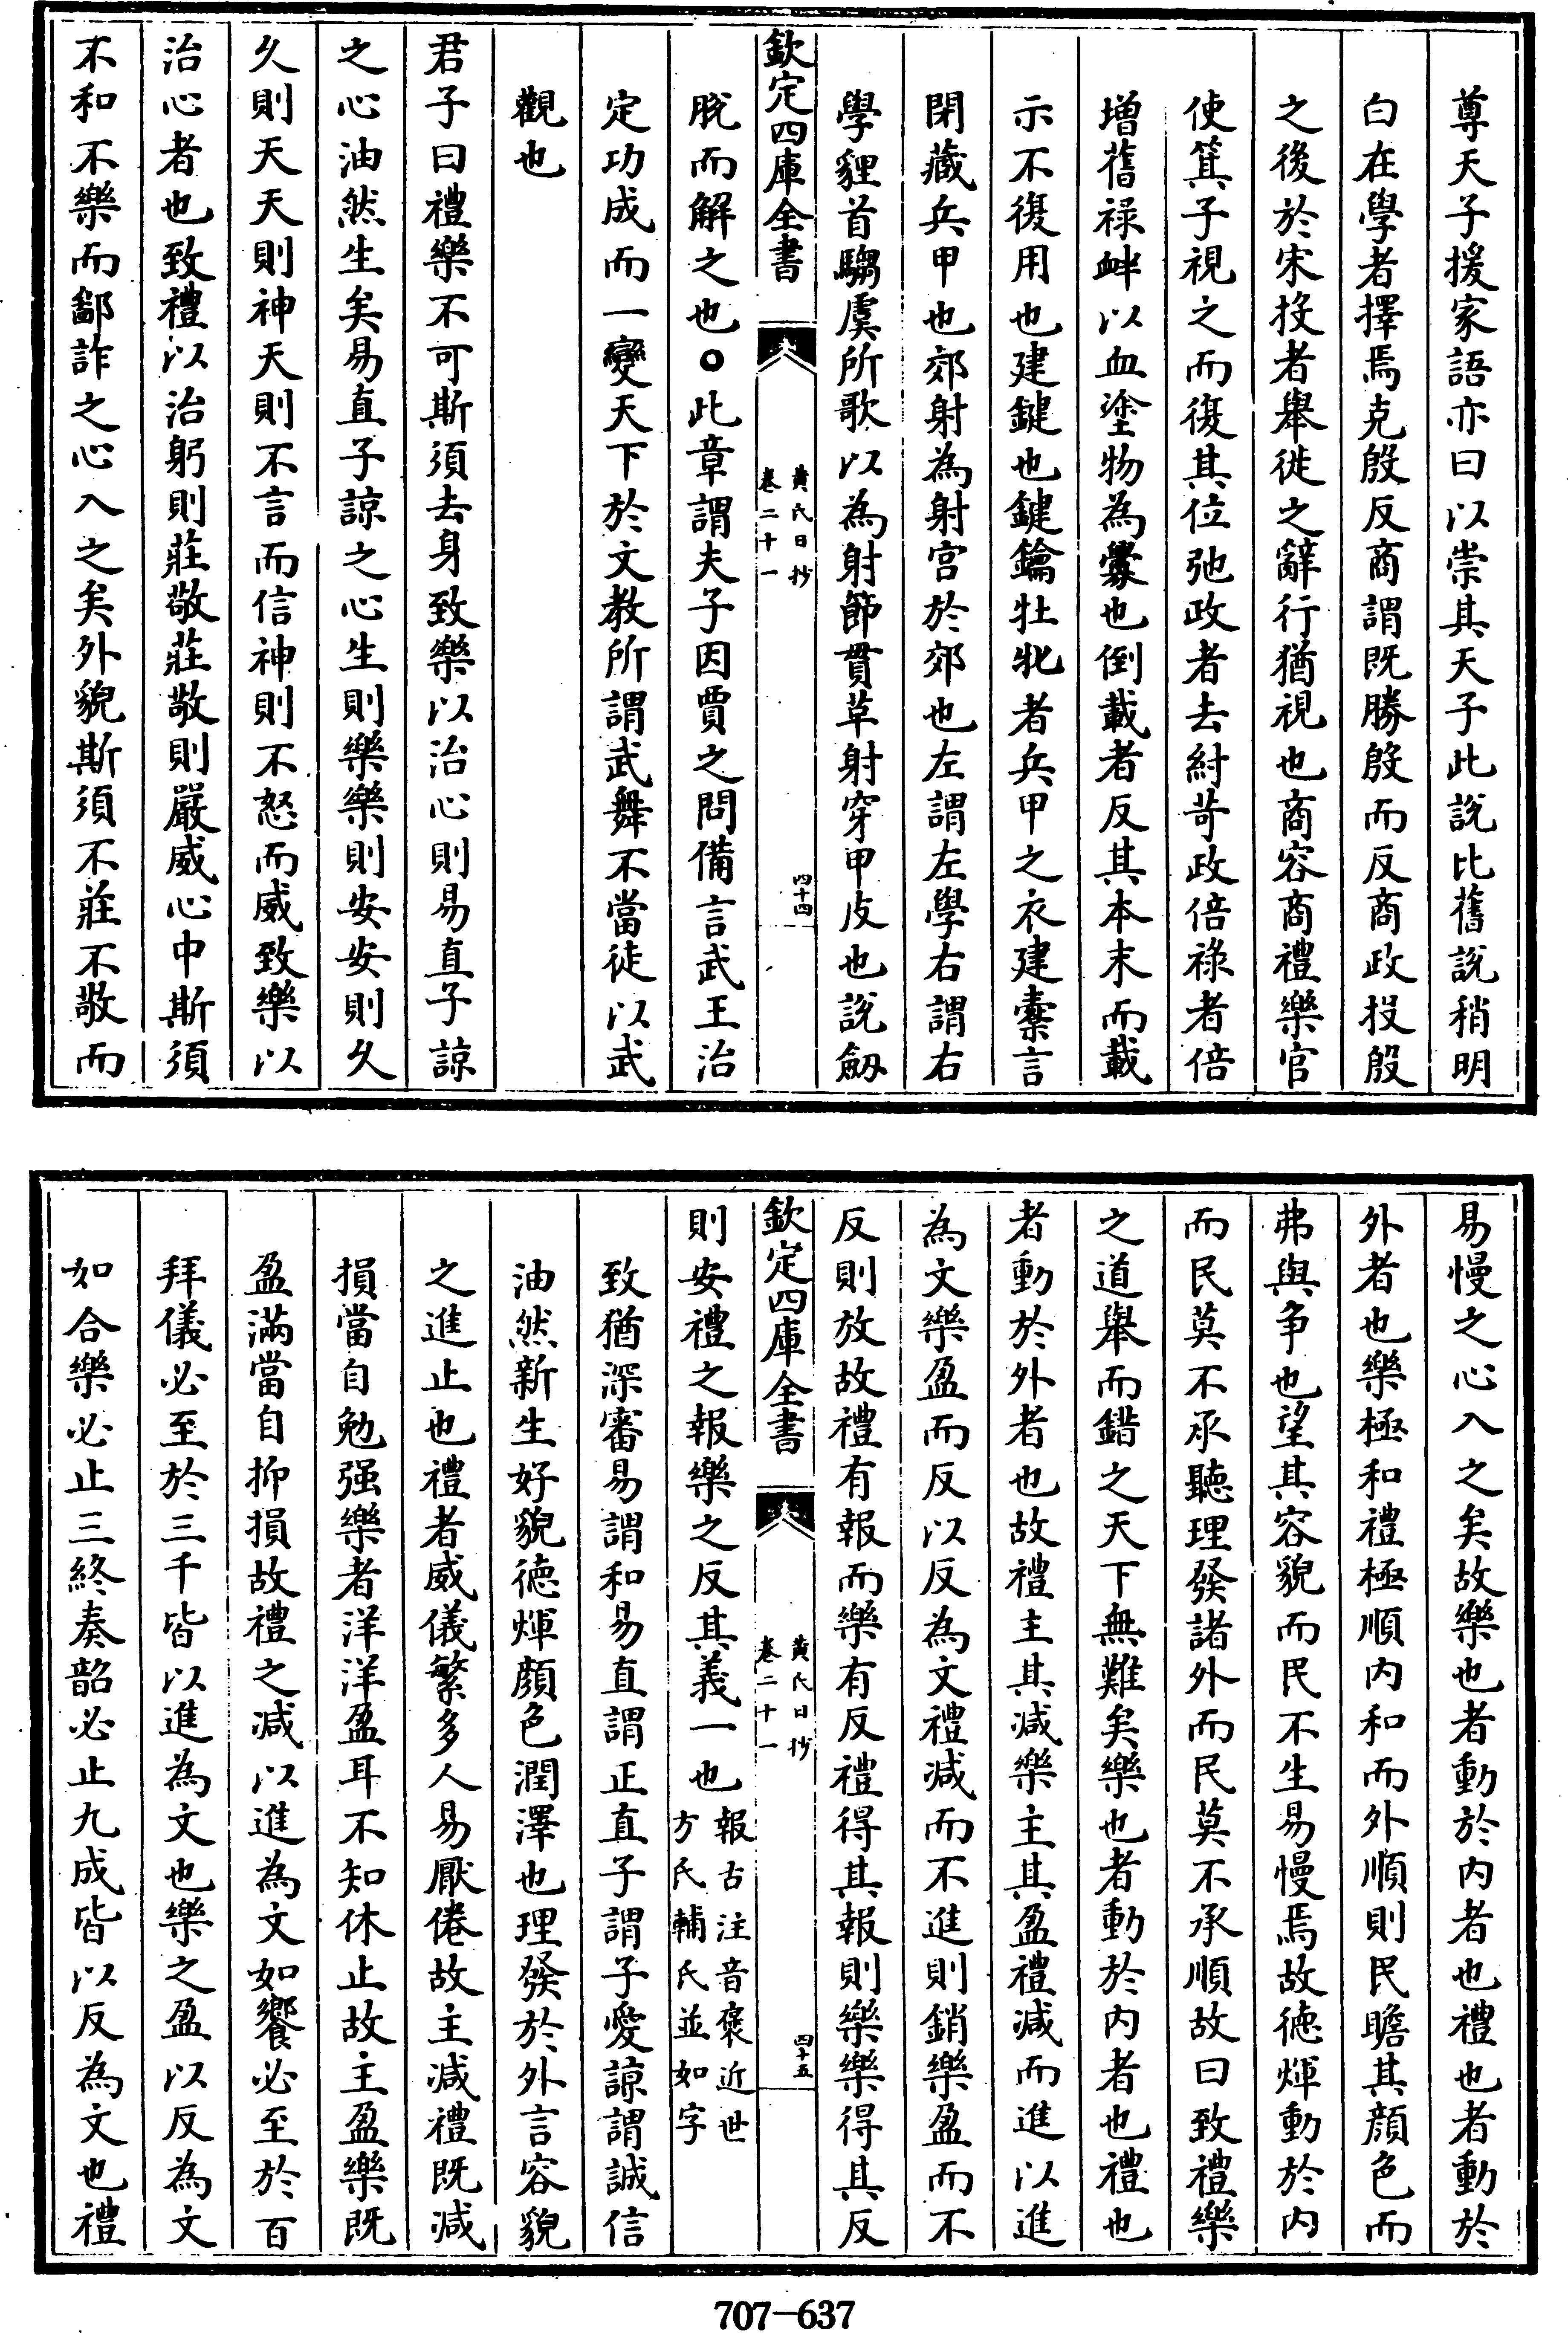 尊天子援家語亦曰以崇其天子此說比舊說稍明
白在學者擇焉克殷反商謂既勝殷而反商政投殷
之後於宋投者舉徙之辭行猶視也商容商禮樂官
使箕子視之而復其位弛政者去紂苛政倍祿者倍
増舊祿衅以血塗物為釁也倒載者反其本末而載
示不復用也建鍵也鍵鑰牡牝者兵甲之衣建櫜言
閉藏兵甲也郊射為射宫於郊也左謂左學右謂右
學貍首騶虞所歌以為射節貫革射穿甲皮也說劔
欽定四庫全書
黄氏日抄
卷二十一
四十四
脫而解之也○此章謂夫子因賈之問備言武王治
定功成而一變天下於文教所謂武舞不當徒以武
觀也
君子曰禮樂不可斯須去身致樂以治心則易直子諒
之心油然生矣易直子諒之心生則樂樂則安安則久
久則天天則神天則不言而信神則不怒而威致樂以
治心者也致禮以治躬則莊敬莊敬則嚴威心中斯須
不和不樂而鄙詐之心入之矣外貌斯須不莊不敬而
易慢之心入之矣故樂也者動於内者也禮也者動於
外者也樂極和禮極順内和而外順則民瞻其顔色而
弗與争也望其容貌而民不生易慢焉故德煇動於内
而民莫不承聽理發諸外而民莫不承順故曰致禮樂
之道舉而錯之天下無難矣樂也者動於内者也禮也
者動於外者也故禮主其減樂主其盈禮減而進以進
為文樂盈而反以反為文禮減而不進則銷樂盈而不
反則放故禮有報而樂有反禮得其報則樂樂得其反
欽定四庫全書
黄氏日抄
卷二十一
四十五
則安禮之報樂之反其義一也報古注音褒近世方氏輔氏並如字
致猶深審易謂和易直謂正直子謂子愛諒謂誠信
油然新生好貌德煇顔色潤澤也理發於外言容貌
之進止也禮者威儀繁多人易厭倦故主減禮既減
損當自勉强樂者洋洋盈耳不知休止故主盈樂既
盈滿當自抑損故禮之減以進為文如饗必至於百
拜儀必至於三千皆以進為文也樂之盈以反為文
如合樂必止三終奏韶必止九成皆以反為文也禮
707-637